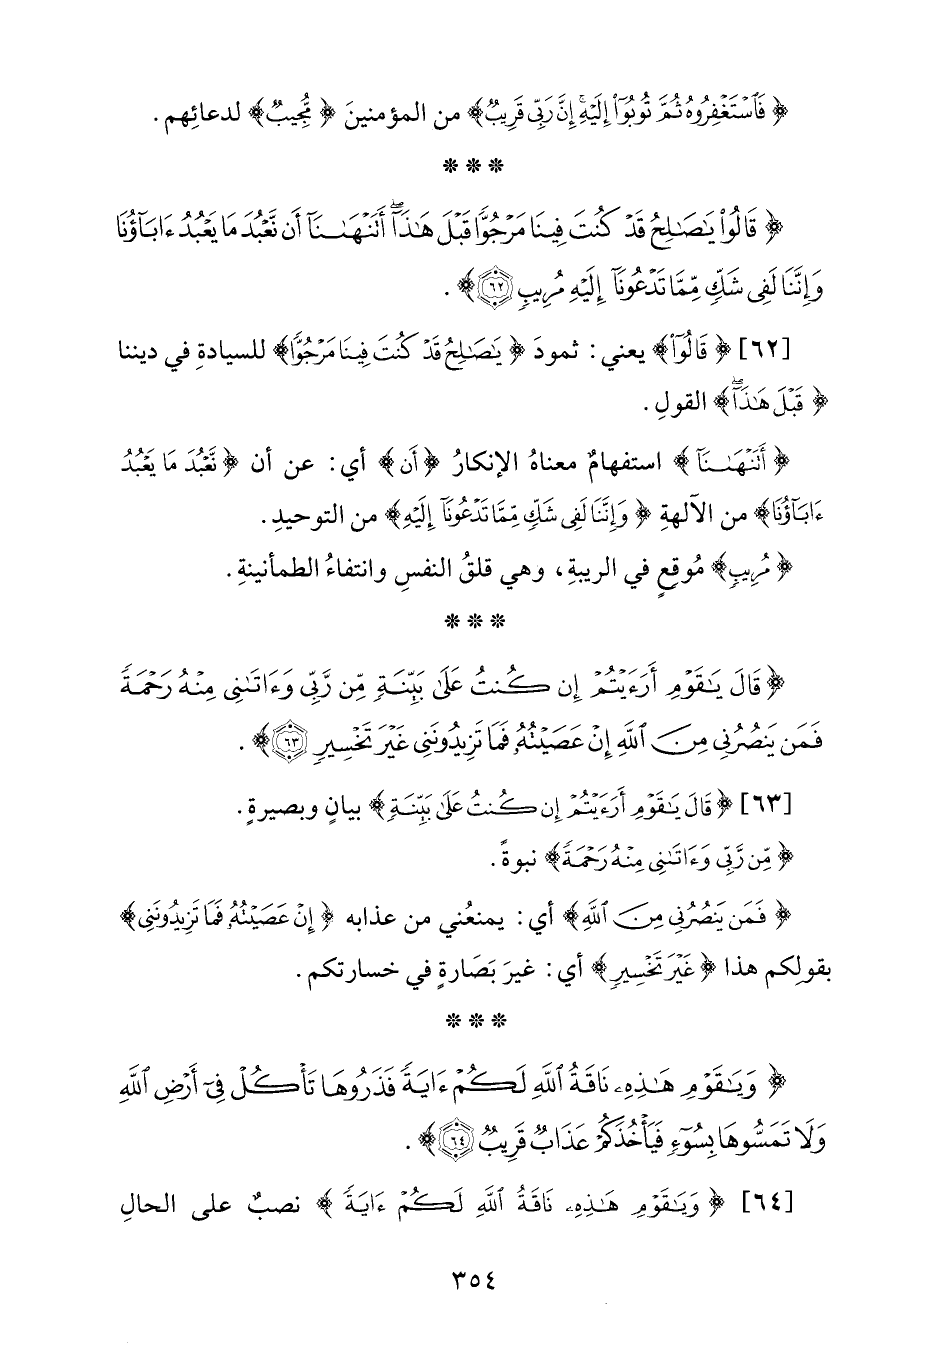 ﴿ فَٱسْتَغْفِرُوهُ ثُمَّ تُوبُوٓا۟ إِلَيْهِ ۚ إِنَّ رَبِّى قَرِيبٌ﴾ من المؤمنينَ ﴿ مُّجِيبٌ﴾ لدعائِهم .
* * *
﴿ قَالُوا۟ يَـٰصَـٰلِحُ قَدْ كُنتَ فِينَا مَرْجُوًّا قَبْلَ هَـٰذَآ ۖ أَتَنْهَـٰنَآ أَن نَّعْبُدَ مَا يَعْبُدُ ءَابَآؤُنَا
وَإِنَّنَا لَفِى شَكٍّ مِّمَّا تَدْعُونَآ إِلَيْهِ مُرِيبٍ ٦٢﴾ .
[٦٢] ﴿ قَالُوٓا۟﴾ يعني : ثمودَ ﴿ يَـٰصَـٰلِحُ قَدْ كُنتَ فِينَا مَرْجُوًّا﴾ للسيادةِ في ديننا
﴿ قَبْلَ هَـٰذَآ ۖ﴾ القولِ .
﴿ أَتَنْهَـٰنَآ ﴾ استفهامٌ معناهُ الإنكارُ ﴿أَن﴾ أي : عن أن ﴿ نَّعْبُدَ مَا يَعْبُدُ
ءَابَآؤُنَا﴾ من الآلهةِ ﴿ وَإِنَّنَا لَفِى شَكٍّ مِّمَّا تَدْعُونَآ إِلَيْهِ﴾ من التوحيدِ .
﴿ مُرِيبٍ﴾ مُوقِعٍ في الريبةِ ، وهي قلقُ النفسِ وانتفاءُ الطمأنينةِ .
* * *
﴿ قَالَ يَـٰقَوْمِ أَرَءَيْتُمْ إِن كُنتُ عَلَىٰ بَيِّنَةٍ مِّن رَّبِّى وَءَاتَىٰنِى مِنْهُ رَحْمَةً
فَمَن يَنصُرُنِى مِنَ ٱللَّهِ إِنْ عَصَيْتُهُۥ فَمَا تَزِيدُونَنِى غَيْرَ تَخْسِيرٍ ٦٣﴾ .
[٦٣] ﴿ قَالَ يَـٰقَوْمِ أَرَءَيْتُمْ إِن كُنتُ عَلَىٰ بَيِّنَةٍ﴾ بيانٍ وبصيرةٍ .
﴿ مِّن رَّبِّى وَءَاتَىٰنِى مِنْهُ رَحْمَةً﴾ نبوةً .
﴿ فَمَن يَنصُرُنِى مِنَ ٱللَّهِ﴾ أي : يمنعُني من عذابه ﴿ إِنْ عَصَيْتُهُۥ فَمَا تَزِيدُونَنِى﴾
بقولِكم هذا ﴿ غَيْرَ تَخْسِيرٍ﴾ أي : غيرَ بَصَارةٍ في خسارتكم .
* * *
﴿ وَيَـٰقَوْمِ هَـٰذِهِۦ نَاقَةُ ٱللَّهِ لَكُمْ ءَايَةً فَذَرُوهَا تَأْكُلْ فِىٓ أَرْضِ ٱللَّهِ
وَلَا تَمَسُّوهَا بِسُوٓءٍ فَيَأْخُذَكُمْ عَذَابٌ قَرِيبٌ ٦٤﴾ .
[٦٤] ﴿ وَيَـٰقَوْمِ هَـٰذِهِۦ نَاقَةُ ٱللَّهِ لَكُمْ ءَايَةً ﴾ نصبٌ على الحالِ
٣٥٤